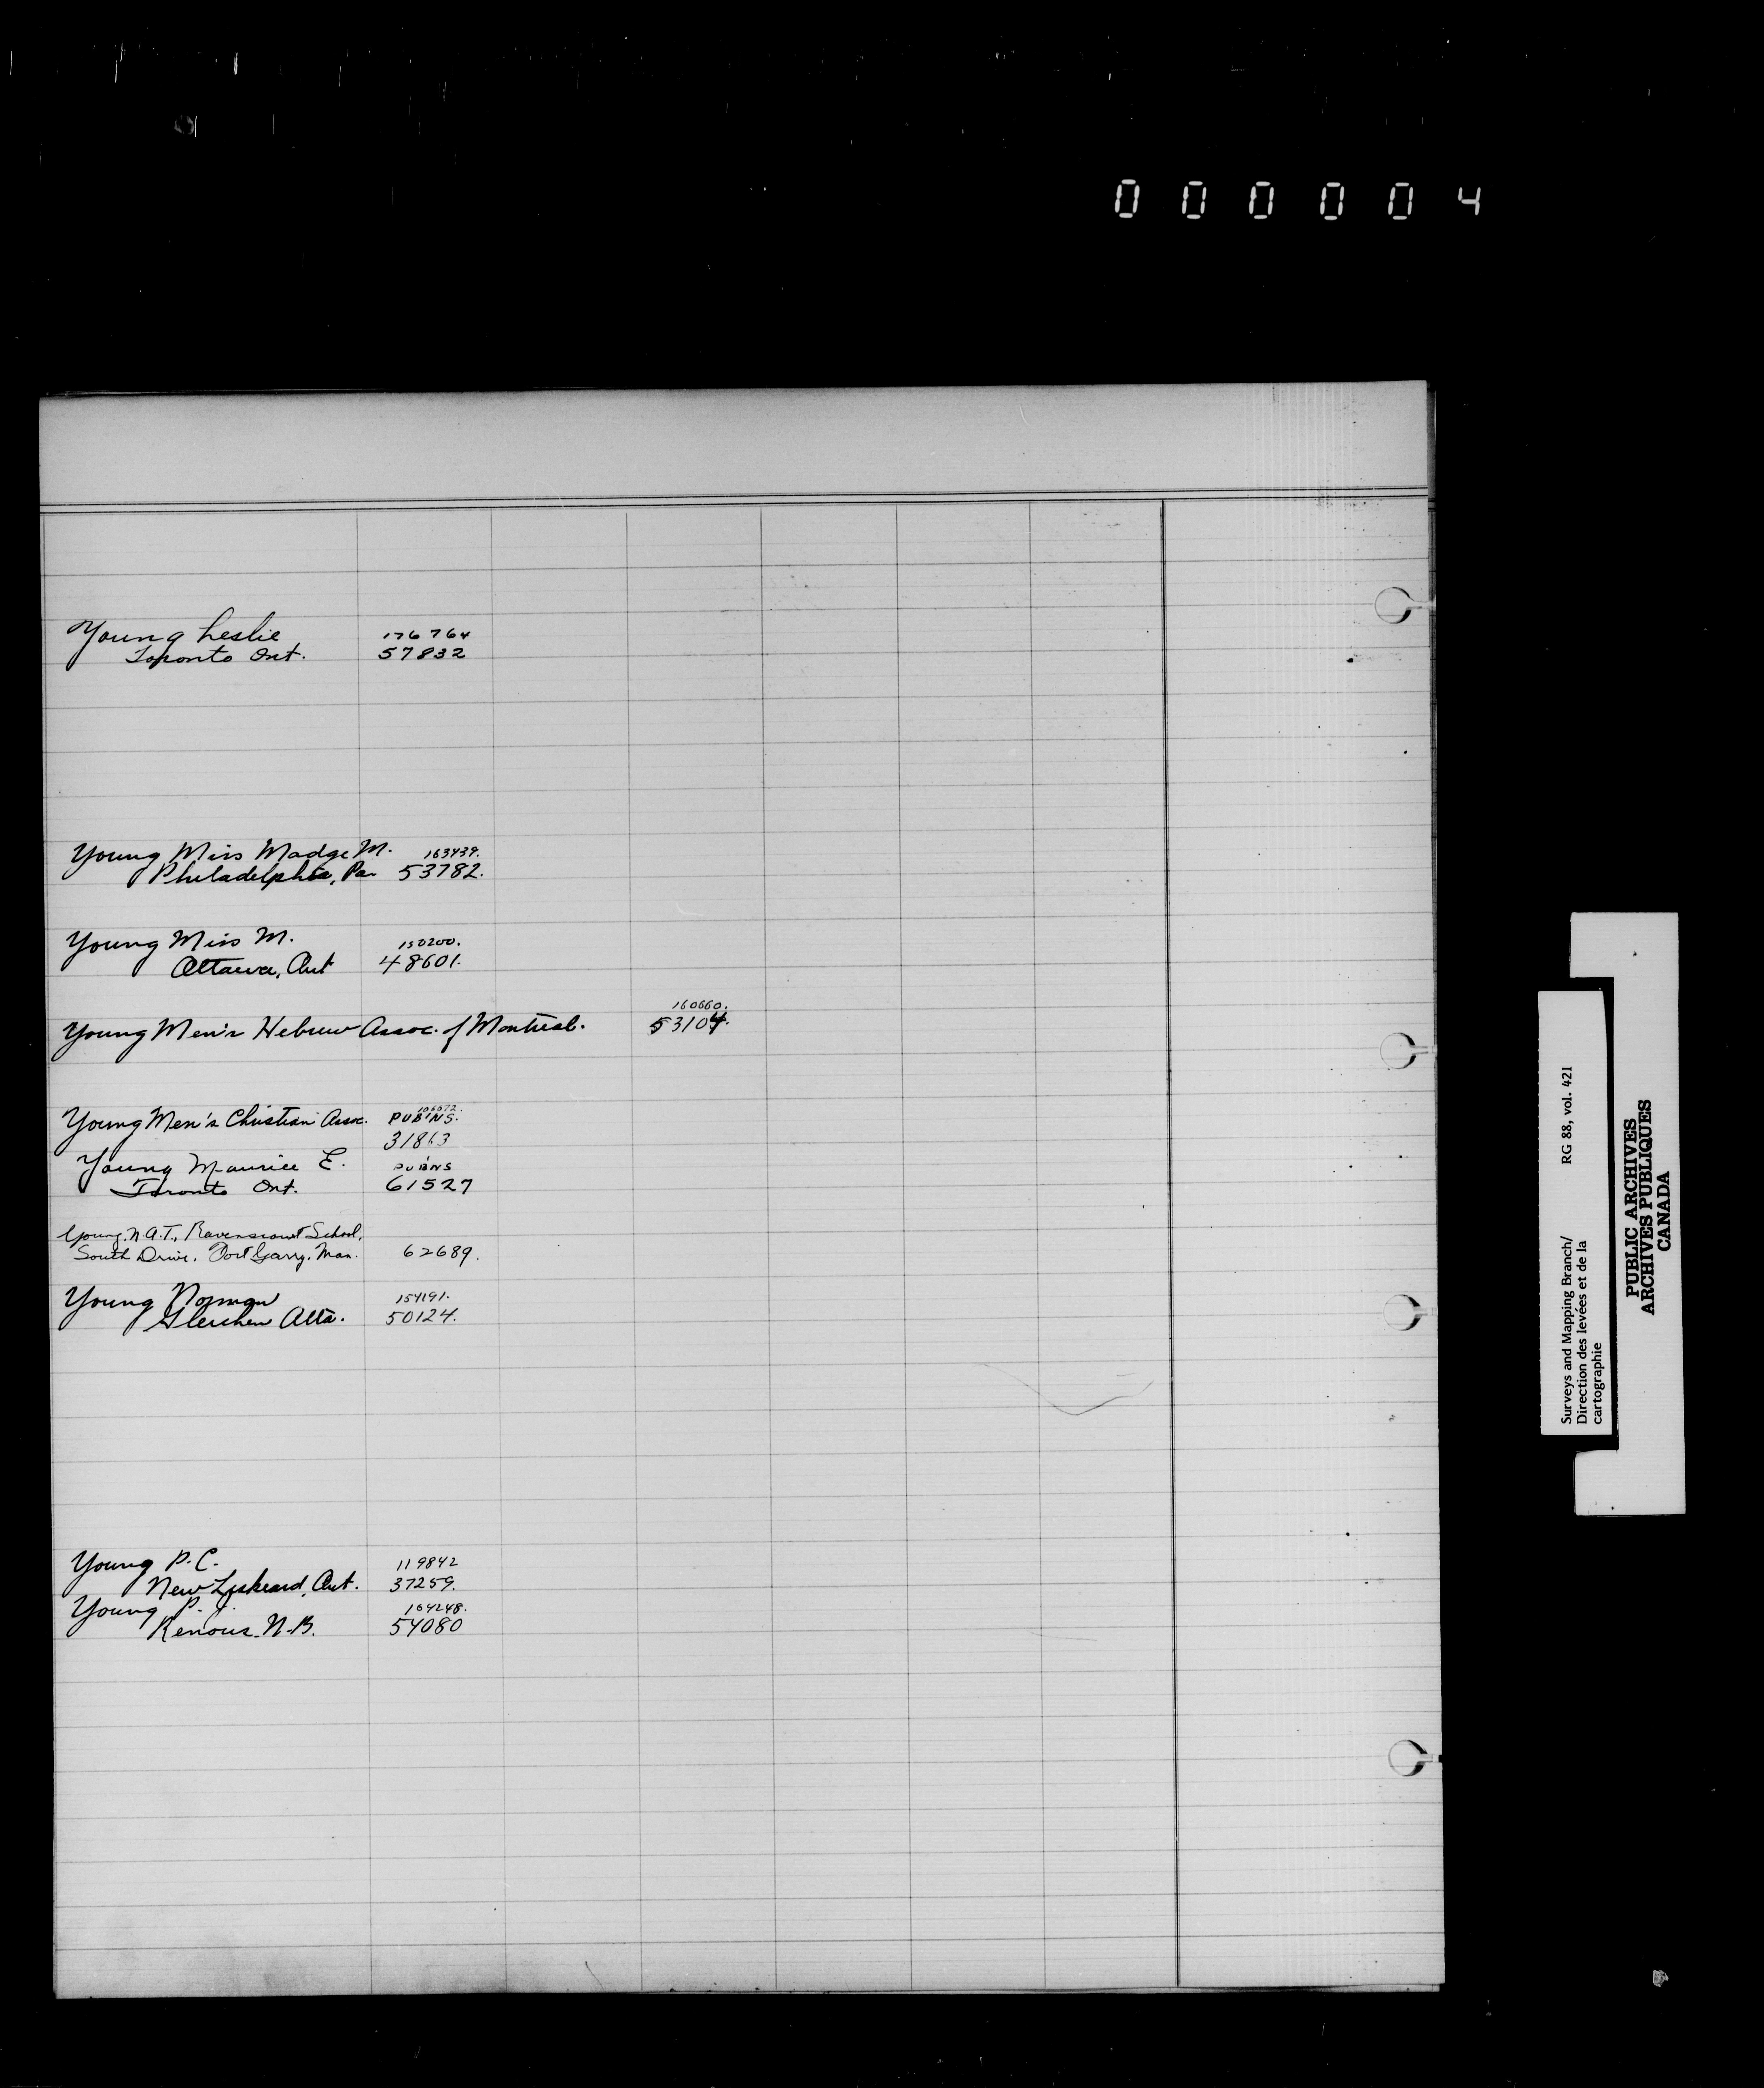 000004
Young Leslie 176764
Toronto Ont. 57832
Young Miss Madge M. 163439.
Philadelphia, Pa. 53782.
Young Miss M. 150200.
Ottawa, Ont 48601.
160660.
Young Men's Hebrew Assoc. of Montreal. 53104.
Young Men's Christian Assoc. PUB'NS.
31863
Young Maurice E. PUB'NS
Toronto Ont. 61527
Young, N.A.T., Ravenscourt School,
South Drive, Fort Garry, Man. 62689.
Young Norman 154191.
Gleichen Alta. 50124.
Young P. C. 119842
New Liskeard, Ont. 37259.
Young P. J. 164248.
Renous N.B. 54080
Surveys and Mapping Branch/ RG 88, vol. 421
Direction des levées et de la
cartographie
PUBLIC ARCHIVES
ARCHIVES PUBLIQUES
CANADA